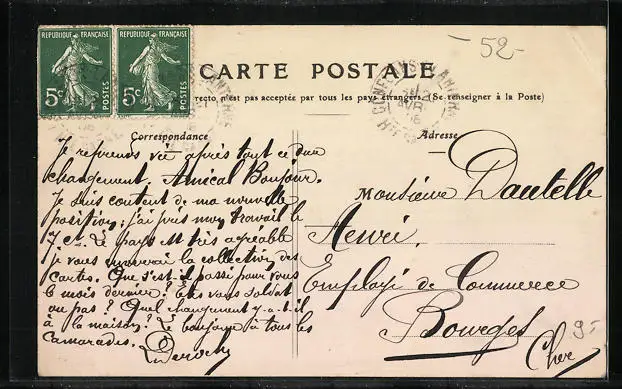 REPUBLIQUE FRANÇAISE
5c POSTES
REPUBLIQUE FRANÇAISE
5c POSTES
52-
CARTE POSTALE
recto n'est pas acceptée par tous les pays étrangers. (Se renseigner à la Poste)
Correspondance
Adresse
Je reprends vie après tout ce
changement, Amical Bonjour.
Je suis content de ma nouvelle
position, j'ai pris mon travail le
7 ct. Le pays est très agréable
je vous enverrai la collection des
cartes. Que s'est-il passé pour vous
6 mois dernier? Êtes vous soldat
ou pas? Quel changement y-a-t-il
à la maison? Le bonjour à tous les
camarades.
Monsieur Dautelle
Henri
Employé de Commerce
Bourges
Cher
9-